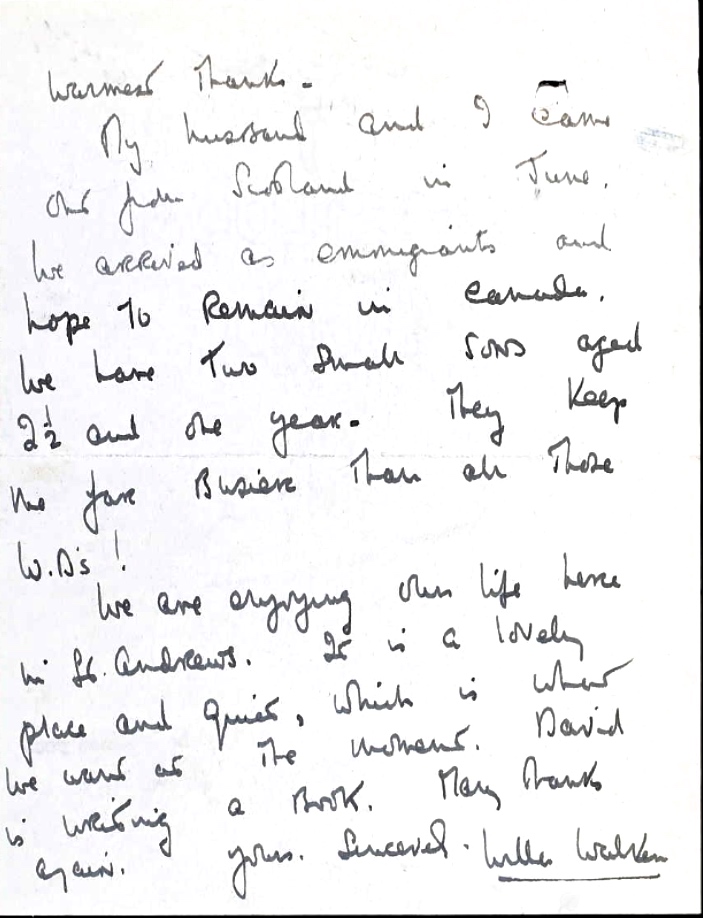 Warmest Thanks.
My husband and I came
out from Scotland in June.
We arrived as emmigrants and
hope To Remain in Canada.
We have Two Small sons aged
2½ and one year. They Keep
me far Busier Than all Those
W.D's!
We are enjoying our life here
in St. Andrews. It is a lovely
place and Quiet, which is what
we want at The moment. David
is writing a Book. Many Thanks
again. yours. Sincerel. Willa Walker